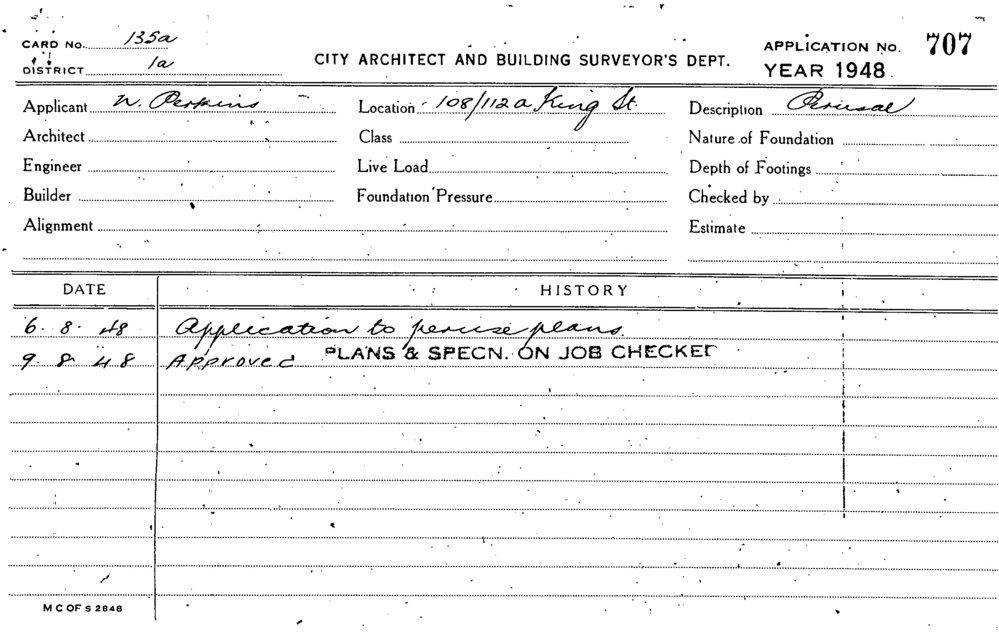 CARD No. 135a
DISTRICT 1a
CITY ARCHITECT AND BUILDING SURVEYOR'S DEPT.
APPLICATION No. 707
YEAR 1948
Applicant W. Perkins Location 108/112a King St. Description Perusal
Architect Class Nature of Foundation
Engineer Live Load Depth of Footings
Builder Foundation Pressure Checked by
Alignment Estimate
DATE HISTORY
6. 8. 48 Application to peruse plans
9. 8. 48 Approved PLANS & SPECN. ON JOB CHECKED
M C OF S 2848